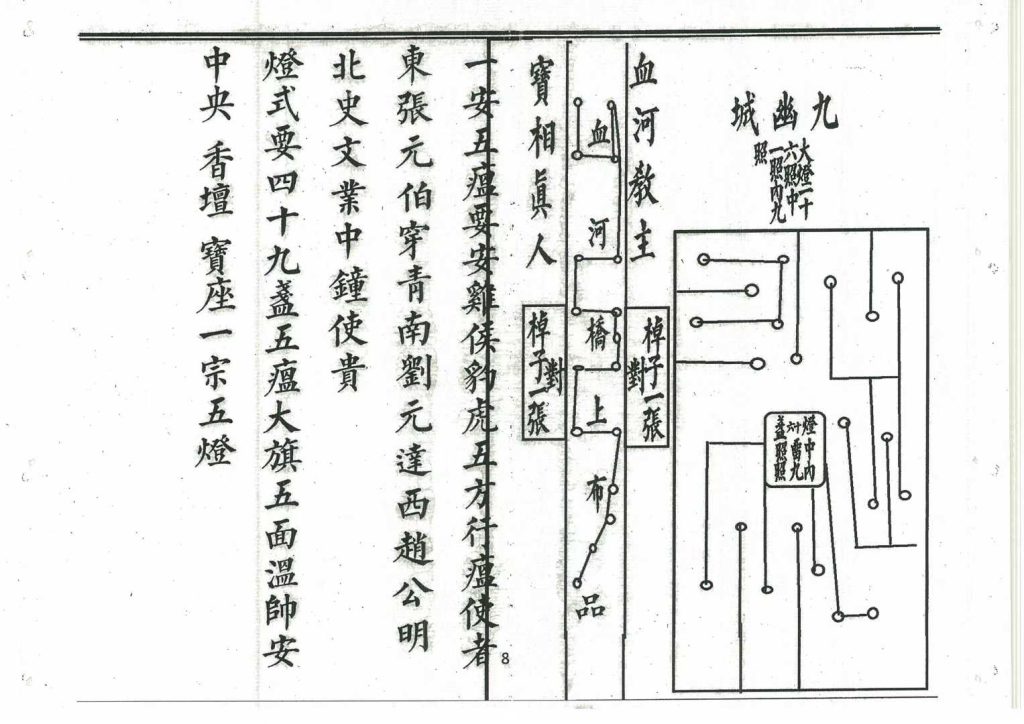 九幽城
大燈二十
六照中
一照內九
照
燈中內
六十雷九
盞照照
血河教主
棹子一張
對
血河橋上布品
寶相眞人
棹子一張
對
一安五瘟要安雞侯豹虎五方行瘟使者
東張元伯穿青南劉元達西趙公明
北史文業中鐘使貴
燈式要四十九盞五瘟大旗五面溫帥安
中央 香壇 寶座一宗五燈
8